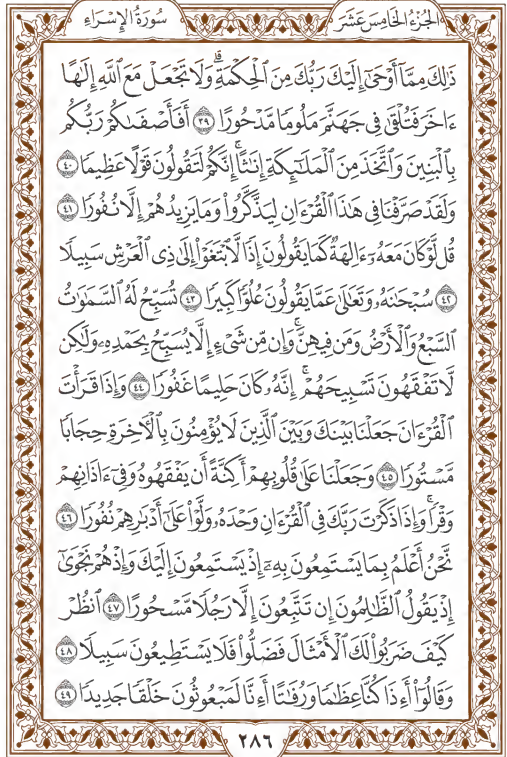 الجُزْءُ الخَامِسَ عَشَرَ
سُورَةُ الإِسْرَاءِ
ذَٰلِكَ مِمَّآ أَوْحَىٰٓ إِلَيْكَ رَبُّكَ مِنَ ٱلْحِكْمَةِۗ وَلَا تَجْعَلْ مَعَ ٱللَّهِ إِلَٰهًا
ءَاخَرَ فَتُلْقَىٰ فِى جَهَنَّمَ مَلُومًا مَّدْحُورًا ٣٩ أَفَأَصْفَىٰكُمْ رَبُّكُم
بِٱلْبَنِينَ وَٱتَّخَذَ مِنَ ٱلْمَلَٰٓئِكَةِ إِنَٰثًاۚ إِنَّكُمْ لَتَقُولُونَ قَوْلًا عَظِيمًا ٤٠
وَلَقَدْ صَرَّفْنَا فِى هَٰذَا ٱلْقُرْءَانِ لِيَذَّكَّرُوا۟ وَمَا يَزِيدُهُمْ إِلَّا نُفُورًا ٤١
قُل لَّوْ كَانَ مَعَهُۥٓ ءَالِهَةٌ كَمَا يَقُولُونَ إِذًا لَّٱبْتَغَوْا۟ إِلَىٰ ذِى ٱلْعَرْشِ سَبِيلًا
٤٢ سُبْحَٰنَهُۥ وَتَعَٰلَىٰ عَمَّا يَقُولُونَ عُلُوًّا كَبِيرًا ٤٣ تُسَبِّحُ لَهُ ٱلسَّمَٰوَٰتُ
ٱلسَّبْعُ وَٱلْأَرْضُ وَمَن فِيهِنَّۚ وَإِن مِّن شَىْءٍ إِلَّا يُسَبِّحُ بِحَمْدِهِۦ وَلَٰكِن
لَّا تَفْقَهُونَ تَسْبِيحَهُمْۗ إِنَّهُۥ كَانَ حَلِيمًا غَفُورًا ٤٤ وَإِذَا قَرَأْتَ
ٱلْقُرْءَانَ جَعَلْنَا بَيْنَكَ وَبَيْنَ ٱلَّذِينَ لَا يُؤْمِنُونَ بِٱلْأَخِرَةِ حِجَابًا
مَّسْتُورًا ٤٥ وَجَعَلْنَا عَلَىٰ قُلُوبِهِمْ أَكِنَّةً أَن يَفْقَهُوهُ وَفِىٓ ءَاذَانِهِمْ
وَقْرًاۚ وَإِذَا ذَكَرْتَ رَبَّكَ فِى ٱلْقُرْءَانِ وَحْدَهُۥ وَلَّوْا۟ عَلَىٰٓ أَدْبَٰرِهِمْ نُفُورًا ٤٦
نَّحْنُ أَعْلَمُ بِمَا يَسْتَمِعُونَ بِهِۦٓ إِذْ يَسْتَمِعُونَ إِلَيْكَ وَإِذْ هُمْ نَجْوَىٰٓ
إِذْ يَقُولُ ٱلظَّٰلِمُونَ إِن تَتَّبِعُونَ إِلَّا رَجُلًا مَّسْحُورًا ٤٧ ٱنظُرْ
كَيْفَ ضَرَبُوا۟ لَكَ ٱلْأَمْثَالَ فَضَلُّوا۟ فَلَا يَسْتَطِيعُونَ سَبِيلًا ٤٨
وَقَالُوٓا۟ أَءِذَا كُنَّا عِظَٰمًا وَرُفَٰتًا أَءِنَّا لَمَبْعُوثُونَ خَلْقًا جَدِيدًا ٤٩
٢٨٦